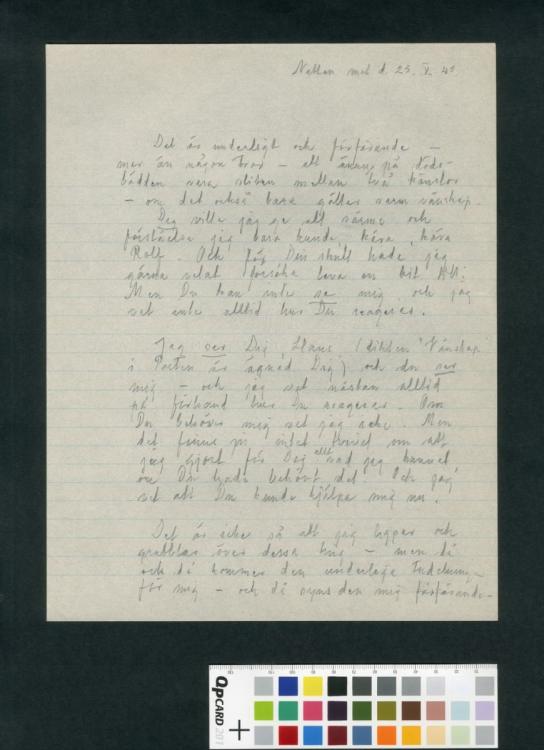 Natten mot d. 25. V. 40
Det är underligt och förfärande –
mer än någon tror – att ännu på döds-
bädden vara sliten mellan två känslor
– om det också bara gäller varm vänskap.
Dig ville jag ge all värme och
förståelse jag bara kunde, kära, kära
Rolf. Och för Din skull hade jag
gärna velat försöka leva en bit till.
Men Du kan inte se mig och jag
vet inte alltid hur Du reagerar.
Jag ser Dig, Hans, (dikten "Vänskap"
i Posten är ägnad Dig) och du ser
mig – och jag vet nästan alltid
på förhand hur Du reagerar. Om
Du behöver mig vet jag icke. Men
det finns ju intet tvivel om att
jag gjort för Dig allt vad jag kunnat,
om Du hade behövt det. Och jag
vet att Du kunde hjälpa mig nu.
Det är icke så att jag ligger och
grubblar över dessa ting – men då
och då kommer den underliga
för mig – och då syns den mig förfärande –